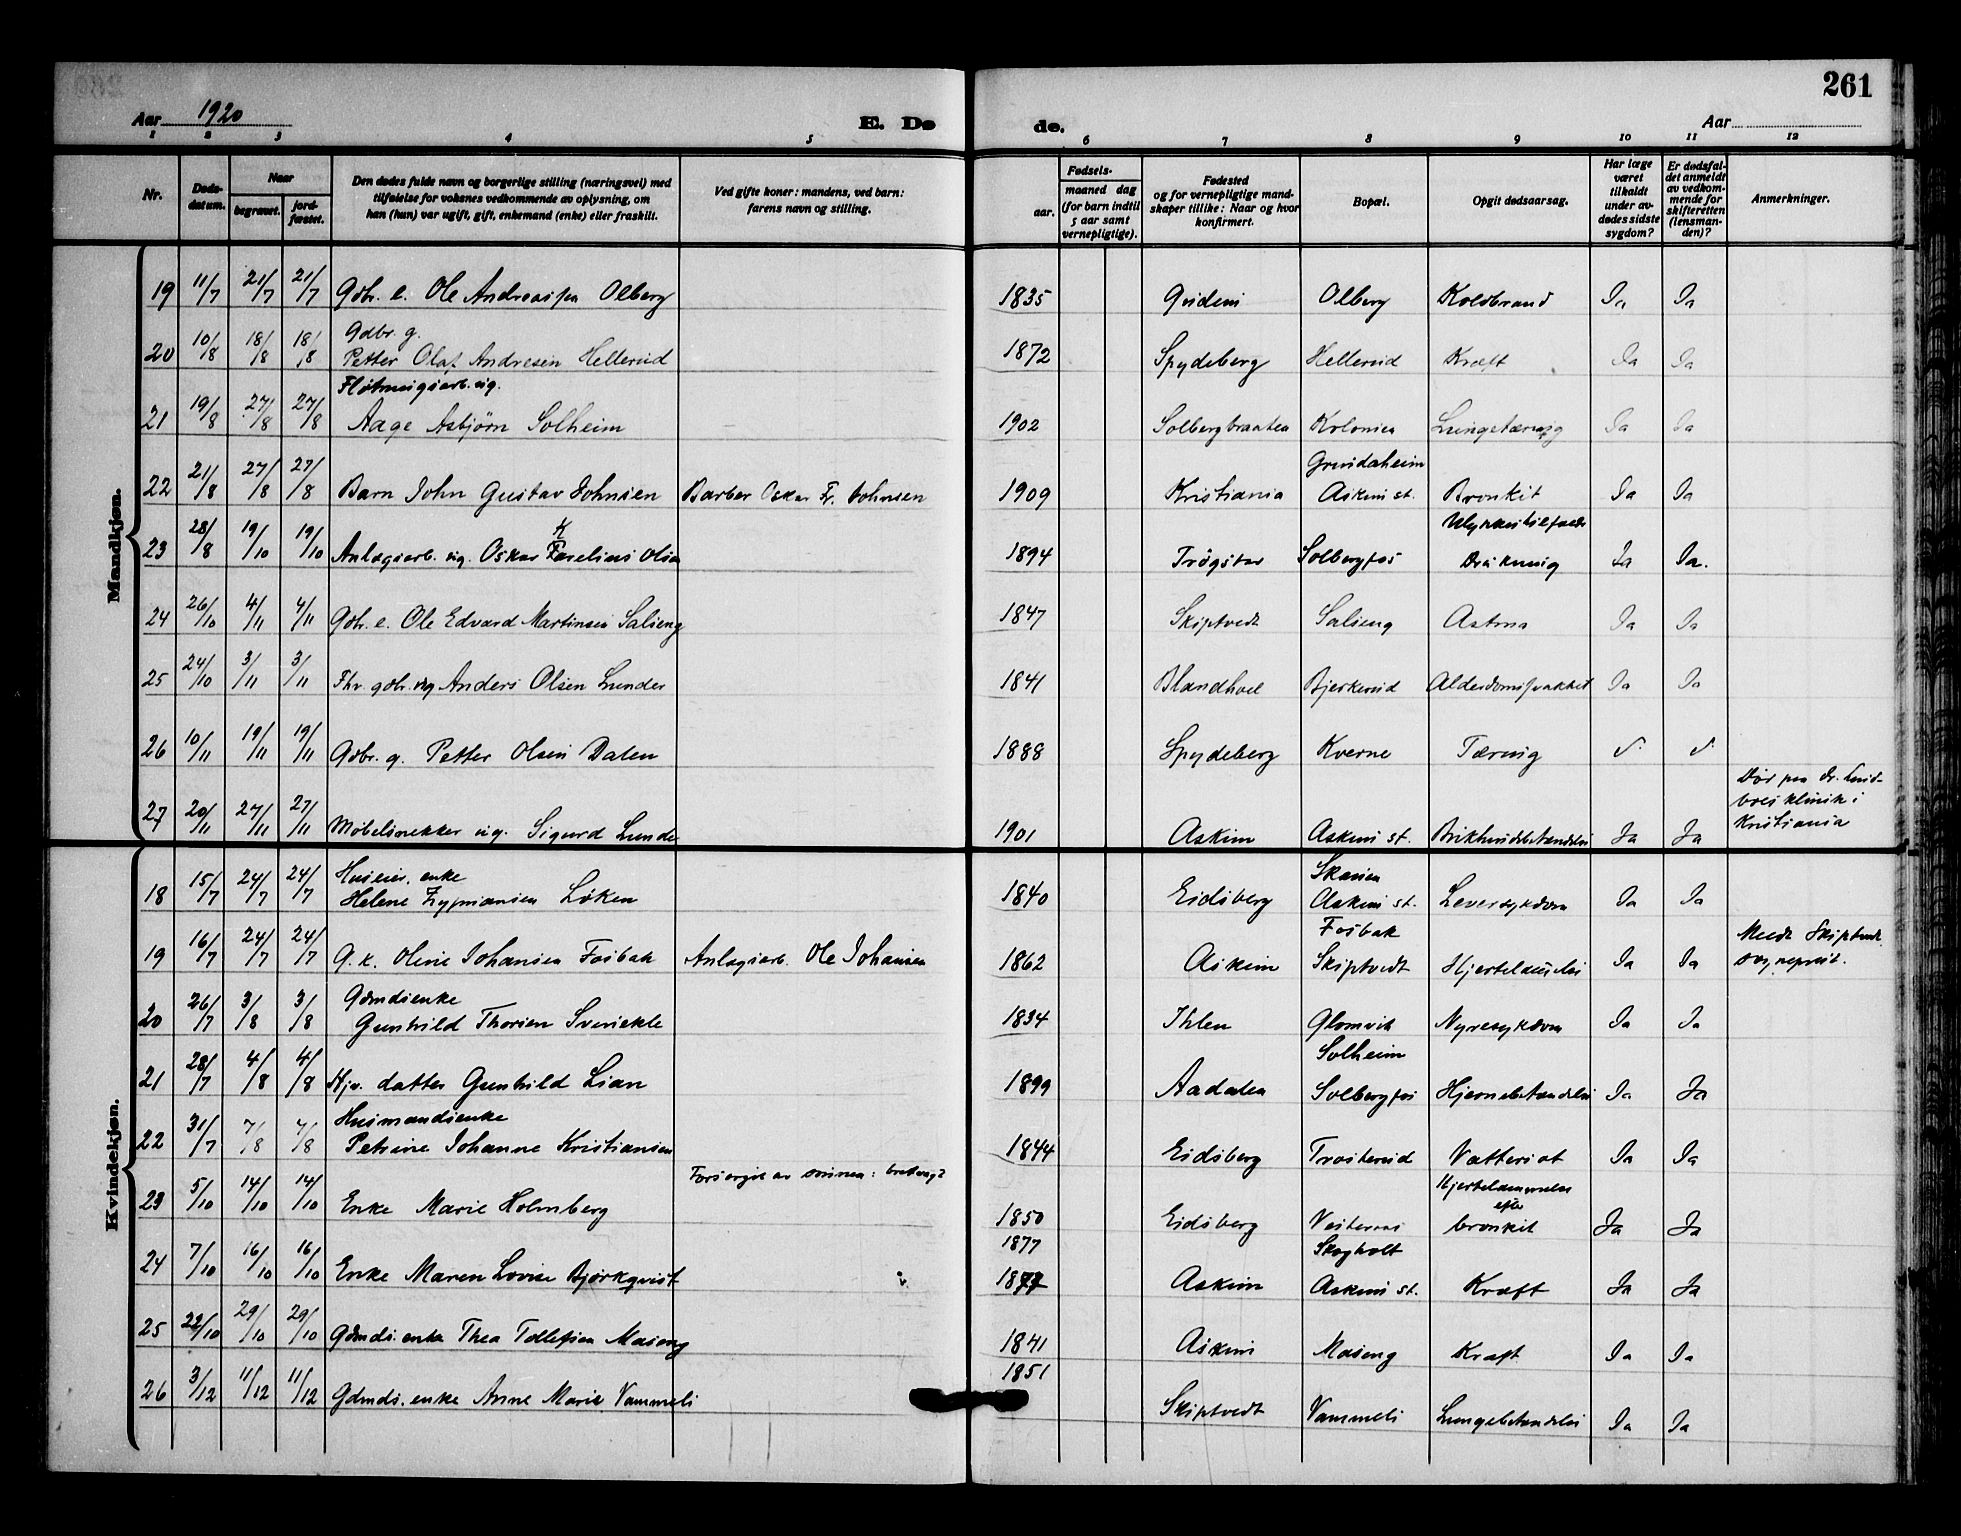 261
Aar 1920
E. Dø
de.
Aar
1 2 3 4 5 6 7 8 9 10 11 12
Nr.
Døds-
datum.
Naar
begravet.
jord-
fæstet.
Den dødes fulde navn og borgerlige stilling (næringsvei) med
tilføielse for voksnes vedkommende av oplysning, om
han (hun) var ugift, gift, enkemand (enke) eller fraskilt.
Ved gifte koner: mandens, ved barn:
farens navn og stilling.
Fødsels-
aar.
maaned dag
(for barn indtil
5 aar samt
vernepligtige).
Fødested
og for vernepligtige mand-
skaper tillike: Naar og hvor
konfirmert.
Bopæl.
Opgit dødsaarsag.
Har læge
været
tilkaldt
under av-
dødes sidste
sygdom?
Er dødsfal-
det anmeldt
av vedkom-
mende for
skifteretten
(lensman-
den)?
Anmerkninger.
Mandkjøn.
19 11/7 21/7 21/7 Gdbr. e. Ole Andreassen Olberg 1835 Olberg Koldbrand Ja Ja
Gdbr. g.
20 10/8 18/8 18/8 Petter Olaf Andresen Hellerud 1872 Spydeberg Hellerud Kræft Ja Ja
21 19/8 27/8 27/8 Aage Asbjørn Solheim 1902 Solbergbraaten Kolonien Lungetæring Ja Ja
Grindaheim
22 21/8 27/8 27/8 Barn John Gustav Johnsen Barber Oskar Fr. Johnsen 1909 Kristiania Askim st. Bronkit Ja Ja
Ulykkestilfælde
23 28/8 19/10 19/10 Anlægsarb. ug. Oskar Karelius Olsen 1894 Trøgstad Solbergfos Drukning Ja Ja.
24 26/10 4/11 4/11 Gdbr. e. Ole Edvard Martinsen Salieng 1847 Skiptvedt Salieng Astma Ja Ja
25 24/10 3/11 3/11 Fhv. gdbr. ug Anders Olsen Lunder 1841 Bjerkerud Alderdomssvakhet Ja Ja
26 10/11 19/11 19/11 Gdbr. g. Petter Olsen Dalen 1888 Spydeberg Kverne Tæring
Dør paa dr.
klinik i
Kristiania
27 20/11 27/11 27/11 Møbelsnekker ug. Sigurd Lunder 1901 Askim Askim st. Brikhindebetændelse Ja Ja
Kvindekjøn.
Huseier. enke
18 15/7 24/7 24/7 Helene Zypriansen Løken 1840 Eidsberg Askim st. Leversykdom Ja Ja
Fosbak
Meldt Skiptvedt
sogneprest.
19 16/7 24/7 24/7 G. k. Oline Johansen Fosbak Anlægsarb. Ole Johansen 1862 Askim Skiptvedt Hjertelammelse Ja Ja
Gdmdsenke
20 26/7 3/8 3/8 Gunhild Thorsen Svenskle 1834 Ihlen Glomvik Nyresykdom Ja Ja
Solheim
21 28/7 4/8 4/8 Hjv. datter Gunhild Lian 1899 Aadalen Solbergfos Hjernebetændelse Ja Ja
Husmandsenke
22 31/7 7/8 7/8 Petrine Johanne Kristiansen 1844 Eidsberg Trosterud Vattersot Ja Ja
Hjertelammelse
efter
23 5/10 14/10 14/10 Enke Marie Holmberg 1850 Eidsberg bronkit Ja Ja
1877
Skogholt
24 7/10 16/10 16/10 Enke Maren Lovise Bjørkqvist Askim Askim st. Kræft Ja Ja
25 22/10 29/10 29/10 Gdmds. enke Thea Tollefsen Maseng 1841 Askim Maseng Kræft Ja Ja
26 3/12 11/12 11/12 Gdmds. enke Anne Marie Vammeli 1851 Skiptvedt Vammeli Lungebetændelse Ja Ja